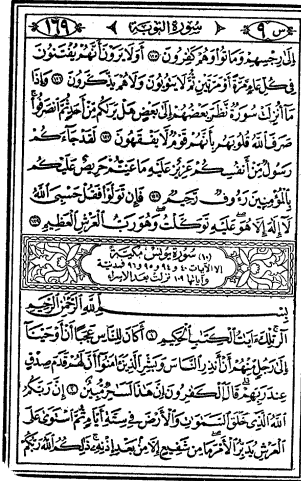 س ٩ سورة التوبة ١٦٩
إلى رجسهم وماتوا وهم كافرون ١٢٥ أولا يرون أنهم يفتنون
في كل عام مرة أو مرتين ثم لا يتوبون ولا هم يذكرون ١٢٦ وإذا
ما أنزلت سورة نظر بعضهم إلى بعض هل يراكم من أحد ثم انصرفوا
صرف الله قلوبهم بأنهم قوم لا يفقهون ١٢٧ لقد جاءكم
رسول من أنفسكم عزيز عليه ما عنتم حريص عليكم
بالمؤمنين رءوف رحيم ١٢٨ فإن تولوا فقل حسبي الله
لا إله إلا هو عليه توكلت وهو رب العرش العظيم ١٢٩
(١٠) سورة يونس مكية
إلا الآيات ٤٠ و ٩٤ و ٩٥ و ٩٦ فمدنية
وآياتها ١٠٩ نزلت بعد الإسراء
بسم الله الرحمن الرحيم
الر تلك ءايات الكتاب الحكيم ١ أكان للناس عجبا أن أوحينا
إلى رجل منهم أن أنذر الناس وبشر الذين ءامنوا أن لهم قدم صدق
عند ربهم قال الكافرون إن هذا لسحر مبين ٢ إن ربكم
الله الذي خلق السموت والأرض في ستة أيام ثم استوى على
العرش يدبر الأمر ما من شفيع إلا من بعد إذنه ذلكم الله ربكم